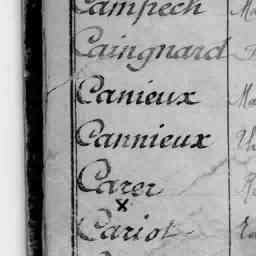 Campech
Caingnard
Canieux
Cannieux
Carer
x
Cariot